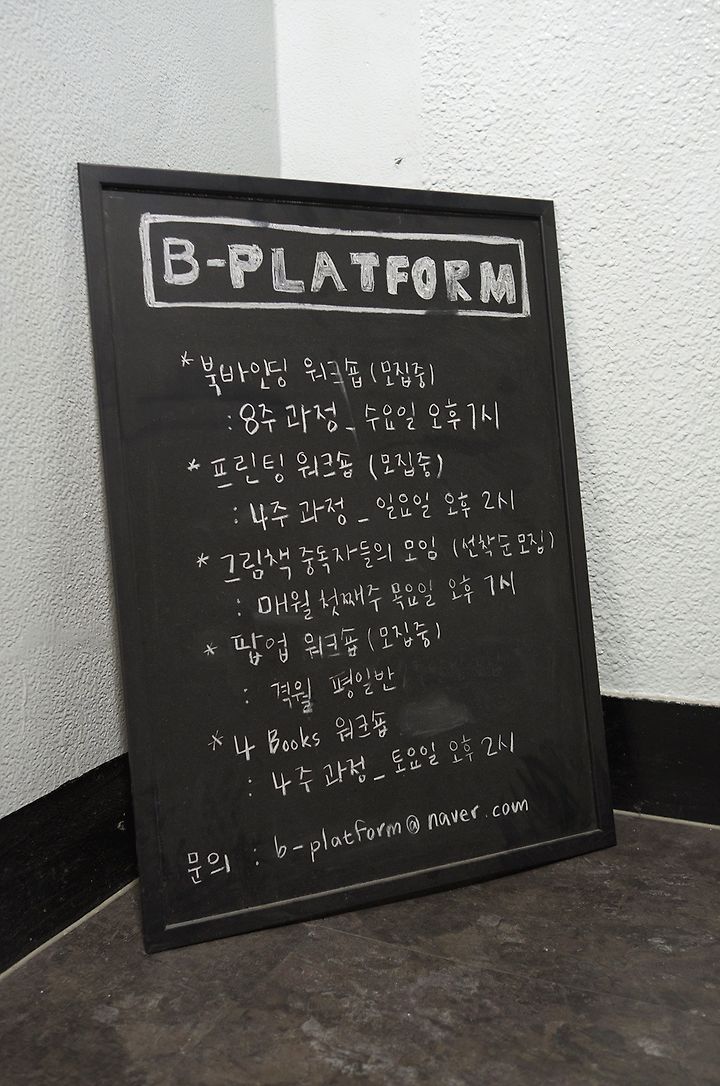 B-PLATFORM
* 북바인딩 워크숍 (모집중)
: 8주 과정_ 수요일 오후 7시
* 프린팅 워크숍 (모집중)
: 4주 과정_ 일요일 오후 2시
* 그림책 중독자들의 모임 (선착순 모집)
: 매월 첫째주 목요일 오후 7시
* 팝업 워크숍 (모집중)
: 격월 평일반
* 4 Books 워크숍
: 4주 과정_ 토요일 오후 2시
문의 : b-platform@naver.com